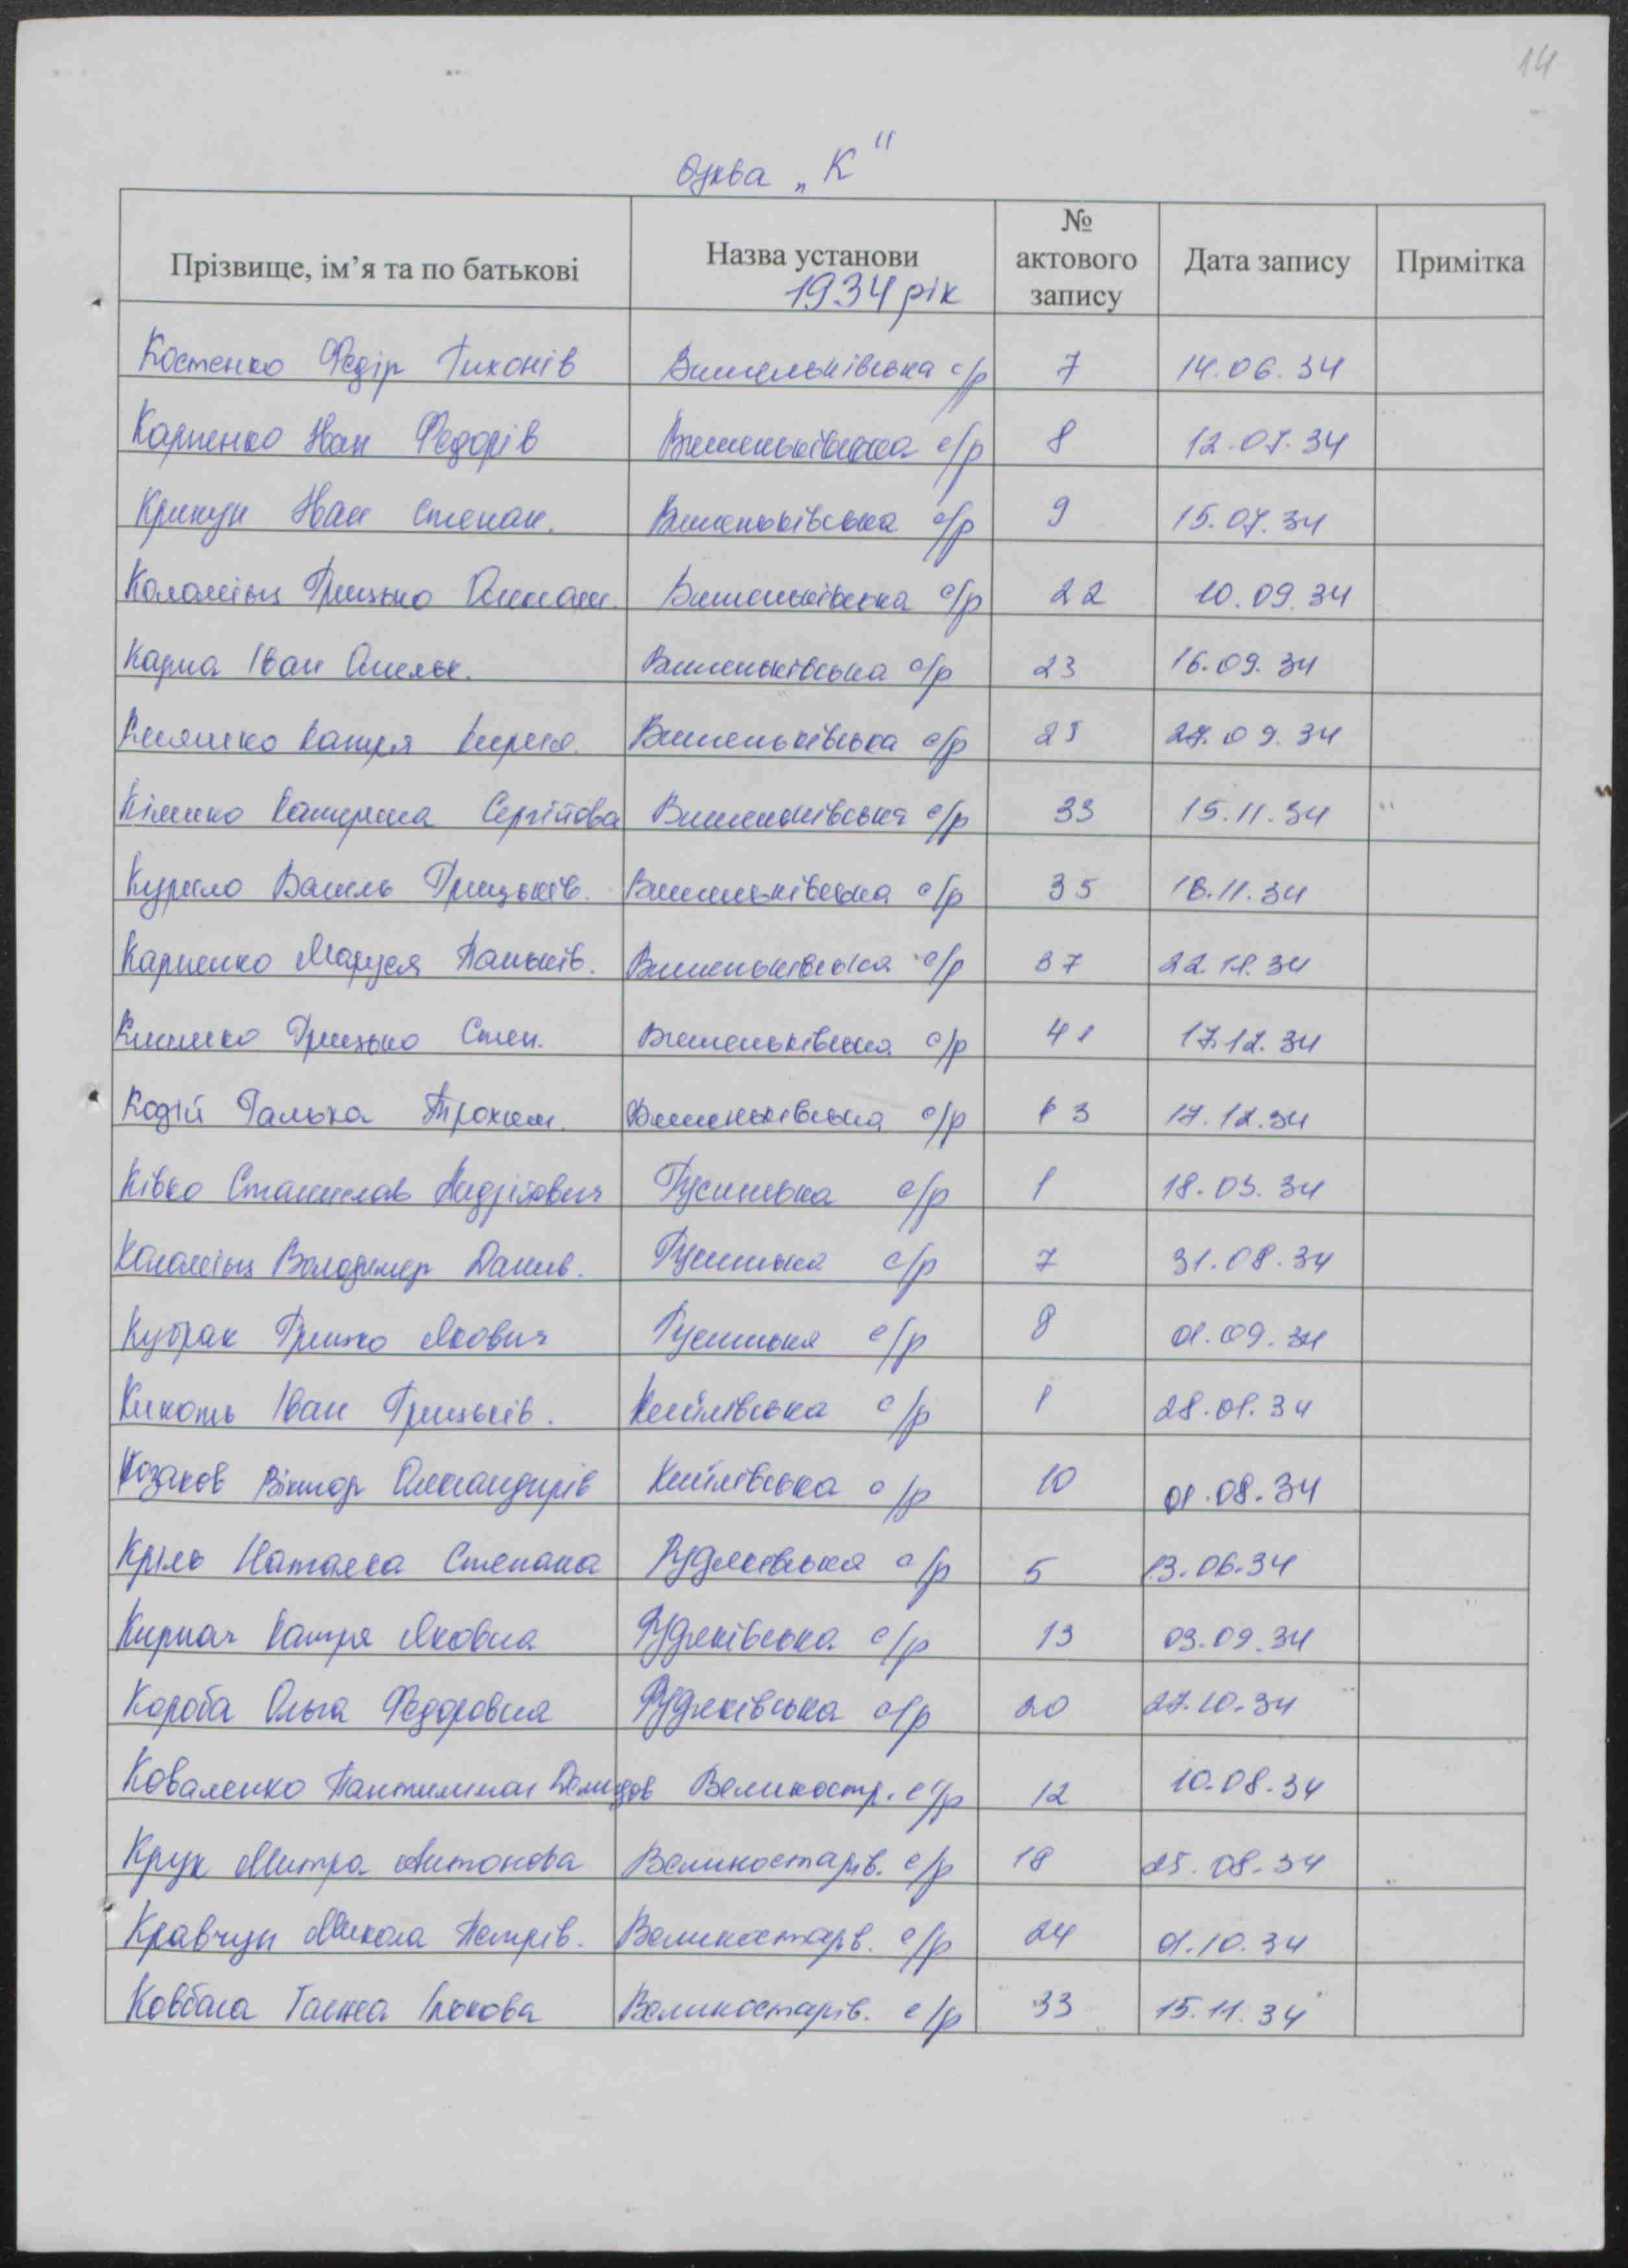 14
буква „К"
Прізвище, ім'я та по батькові Назва установи 1934 рік № актового запису Дата запису Примітка
Костенко Федір Тихонів Вишеньківська с/р 7 14.06.34
Карпенко Іван Федорів Вишеньківська с/р 8 12.07.34
Крикун Іван Степан. Вишеньківська с/р 9 15.07.34
Коломієць Грицько с/р 22 10.09.34
Карпа Іван Омельк. Вишеньківська с/р 23 16.09.34
Катря Вишеньківська с/р 25 27.09.34
Катерина Сергійова Вишеньківська с/р 33 15.11.34
Курило Василь Грицьків. Вишеньківська с/р 35 18.11.34
Карпенко Маруся Паньків. Вишеньківська с/р 37 22.11.34
Грицько Степ. Вишеньківська с/р 41 17.12.34
Кодій Галька Трохим. Вишеньківська с/р 17.12.34
Ківко Станислав Андрійович Гусинська с/р 1 18.03.34
Коломієць Володимир Данил. с/р 7 31.08.34
Кубрак Грицко Якович с/р 8 01.09.34
Кикоть Іван Грицьків. Кийлівська с/р 1 28.01.34
Козаков Віктор Олександрів Кийлівська с/р 10 01.08.34
Кріль Наталка Степана Рудяківська с/р 5 13.06.34
Кирпач Катря Яковна Рудяківська с/р 13 03.09.34
Короба Ольга Федоровна Рудяківська с/р 20 27.10.34
Коваленко Пантилимон Демидов Великостр. с/р 12 10.08.34
Крук Митра Антонова Великостарів. с/р 18 25.08.34
Кравчун Микола Петрів. Великостарів. с/р 24 01.10.34
Ковбаса Ганна Ількова Великостарів. с/р 33 15.11.34